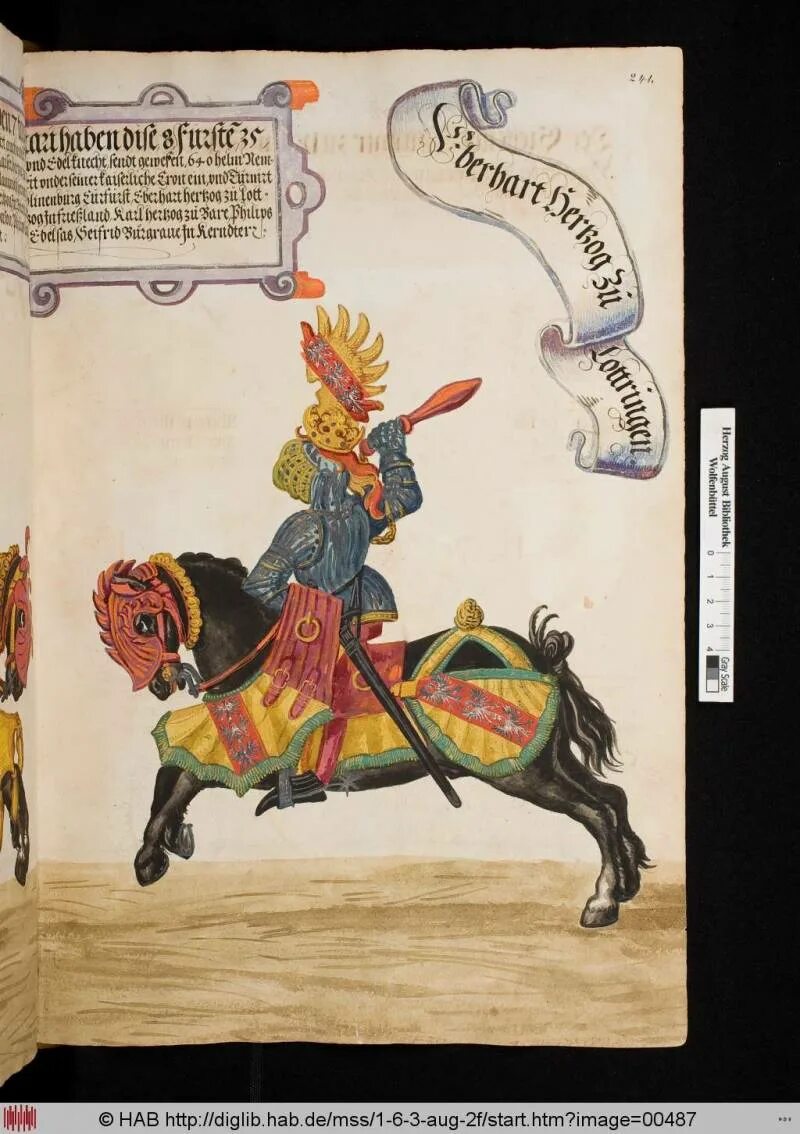 241.
art haben dise 8 Fürstē zc
vnd Edel knecht sendt gewesen, 640 helm Nem-
rt vnder seiner kaiserliche Cron ein, vnd Türnirt
linenburg Cürfürst Eberhart hertzog zü Lott-
zog in frießland Karl hertzog zü Bare Philips
Edelsas, Geifrid Bürgraue Jn Kerndterz.
Eberhart Hertzog Zü
Lottringen
Herzog August Bibliothek
Wolfenbüttel
0 1 2 3 4
Gray Scale
© HAB http://diglib.hab.de/mss/1-6-3-aug-2f/start.htm?image=00487